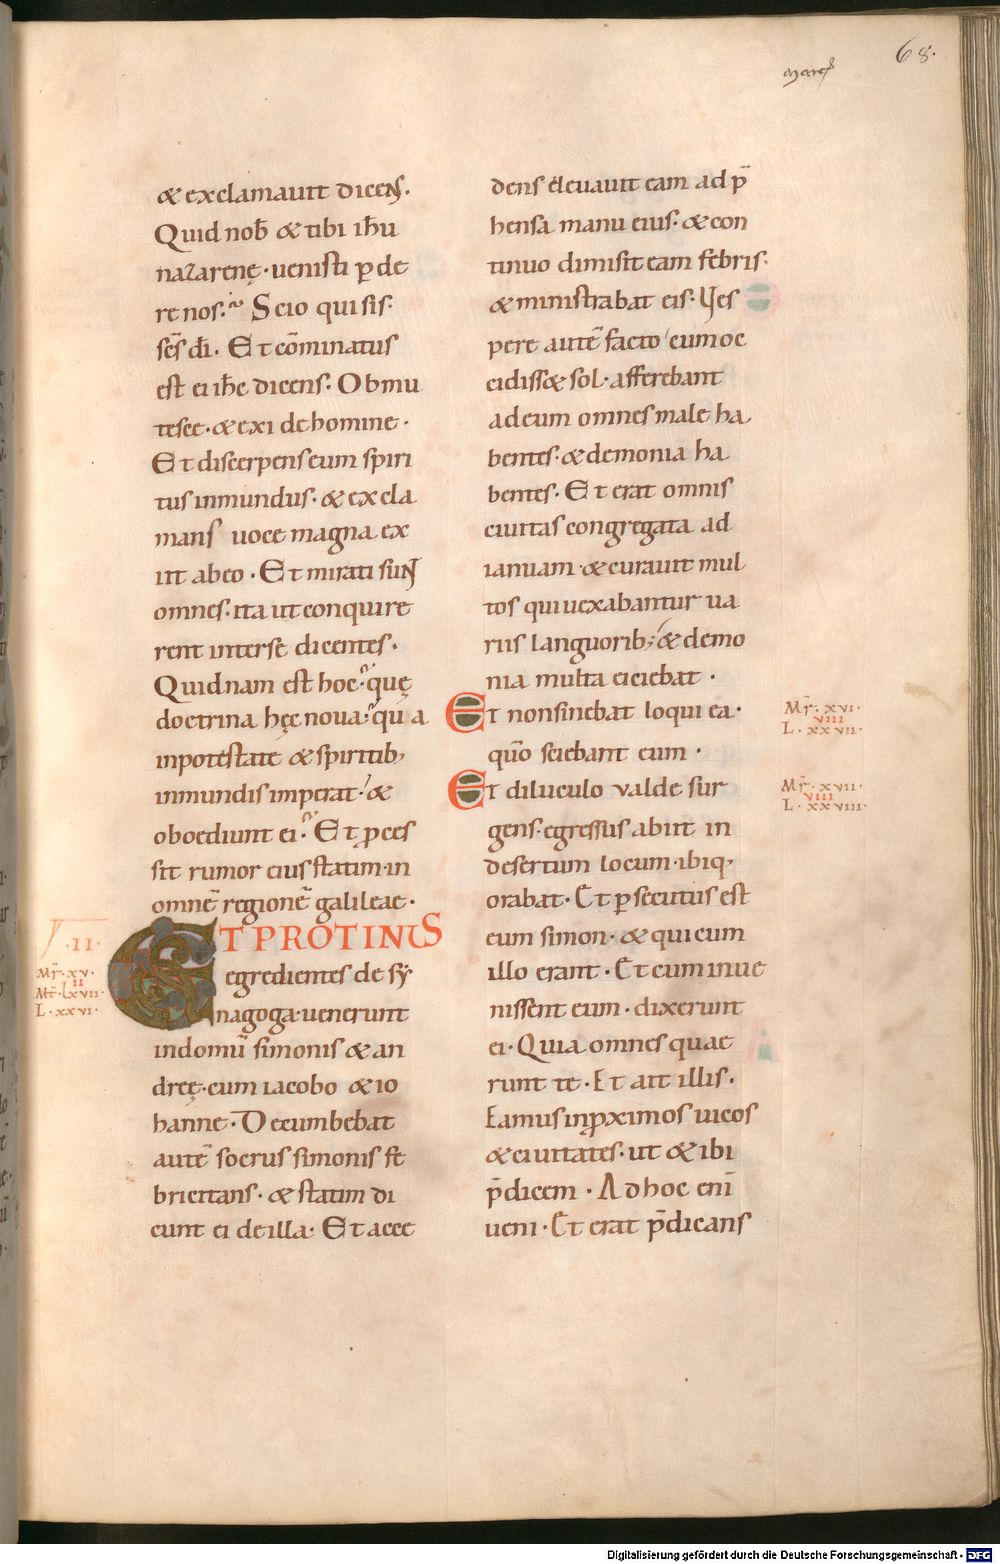 68.
marc
& exclamauit dicens.
Quid nob̄ & tibi ih̄u
nazarenę· uenisti p̱de
re nos· Scio qui sis·
sc̄s dī. Et cōminatus
est ei ih̄c dicens. Obmu
tesce· & exi de homine·
Et discerpens eum spiri
tus inmundus· & excla
mans uoce magna ex
iit ab eo· Et mirati sunt
omnes· ita ut conquire
rent inter se dicentes·
Quidnam est hoc· quę
doctrina hęc noua· quia
in potestate & spiritib;
inmundis imperat· &
oboediunt ei· Et p̱ces
sit rumor eius statim· in
omnē regionē galileae·
·II·
ET PROTINUS
Mr̄· xv·
II
Mt̄· lxvii·
L· xxvi·
egredientes de sy
nagoga· uenerunt
in domū simonis & an
dreę· cum iacobo & io
hanne· Decumbebat
autē socrus simonis fe
bricitans· & statim di
cunt ei de illa· Et acce
dens eleuauit eam adp̄
hensa manu eius· & con
tinuo dimisit eam febris·
& ministrabat eis· Ves
pere autē facto cum oc
cidiss& sol· afferebant
ad eum omnes male ha
bentes· & demonia ha
bentes· Et erat omnis
ciuitas congregata ad
ianuam· & curauit mul
tos qui uexabantur ua
riis languorib; & demo
nia multa eiciebat·
Et non sinebat loqui ea·
Mr̄· xvi·
VIII
L· xxvii·
quō sciebant eum·
Et diluculo valde sur
Mr̄· xvii·
VIII
L· xxviii·
gens· egressus abiit in
desertum locum· ibiq;
orabat· Et p̱secutus est
eum simon· & qui cum
illo erant· Et cum inue
nissent eum· dixerunt
ei· Quia omnes quae
runt te· Et ait illis·
Eamus in p̱ximos uicos
& ciuitates· ut & ibi
p̄dicem· Ad hoc enī
ueni· Et erat p̄dicans
Digitalisierung gefördert durch die Deutsche Forschungsgemeinschaft - DFG